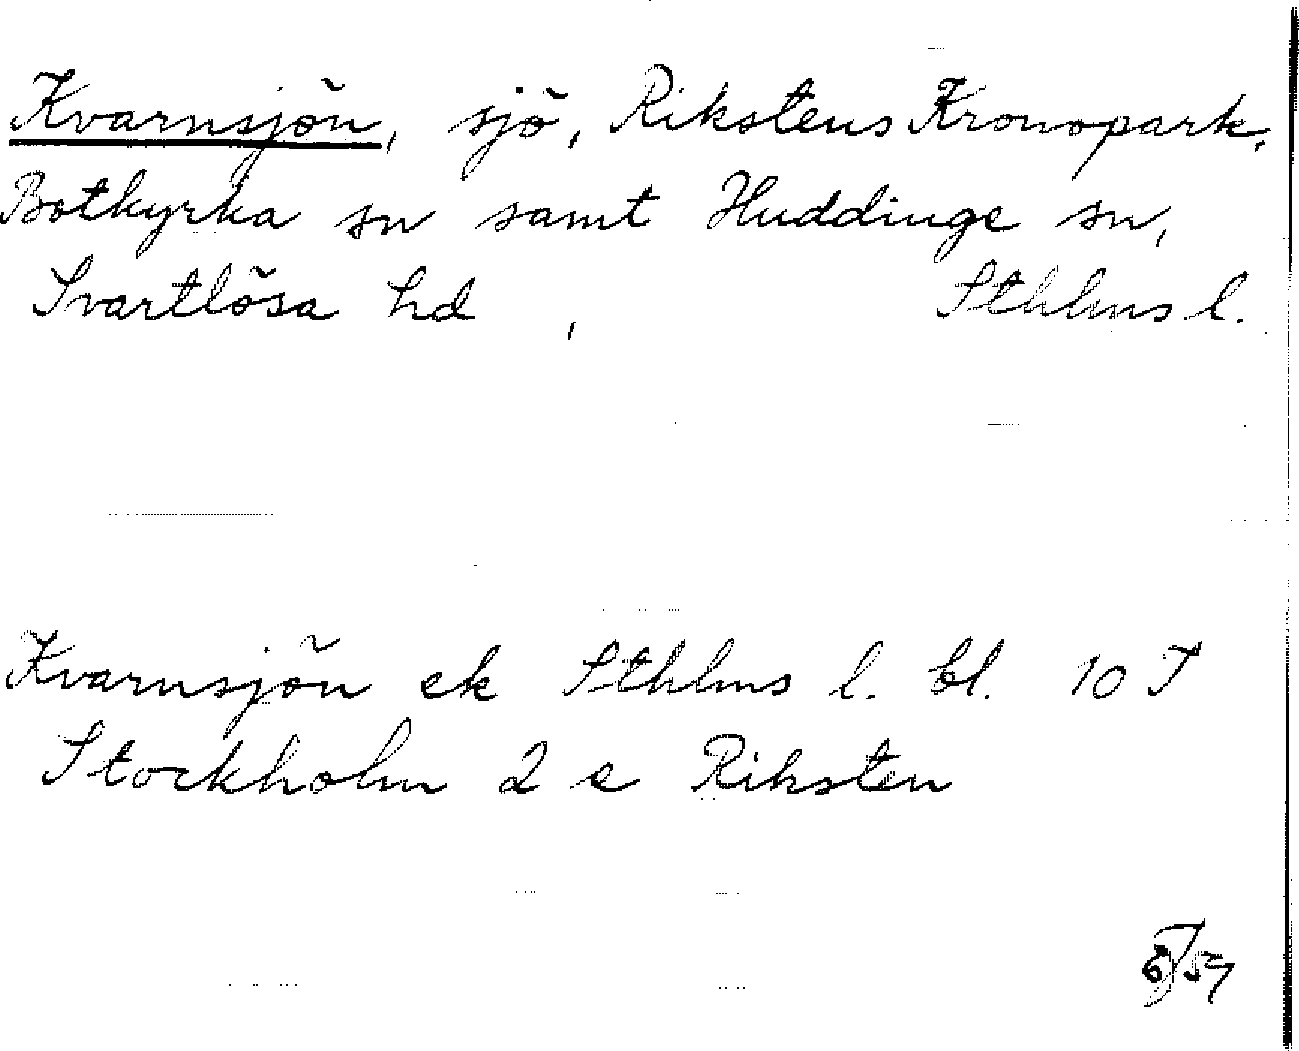 Kvarnsjön, sjö, Rikstens Kronopark,
Botkyrka sn samt Huddinge sn,
Svartlösa hd, Sthlms l.
Kvarnsjön ek Sthlms l. bl. 10 I
Stockholm 2 e Riksten